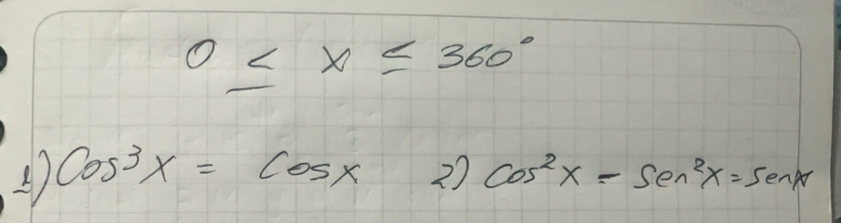 0 ≤ x ≤ 360°
1) Cos³x = Cosx 2) Cos²x - Sen²x = Senx